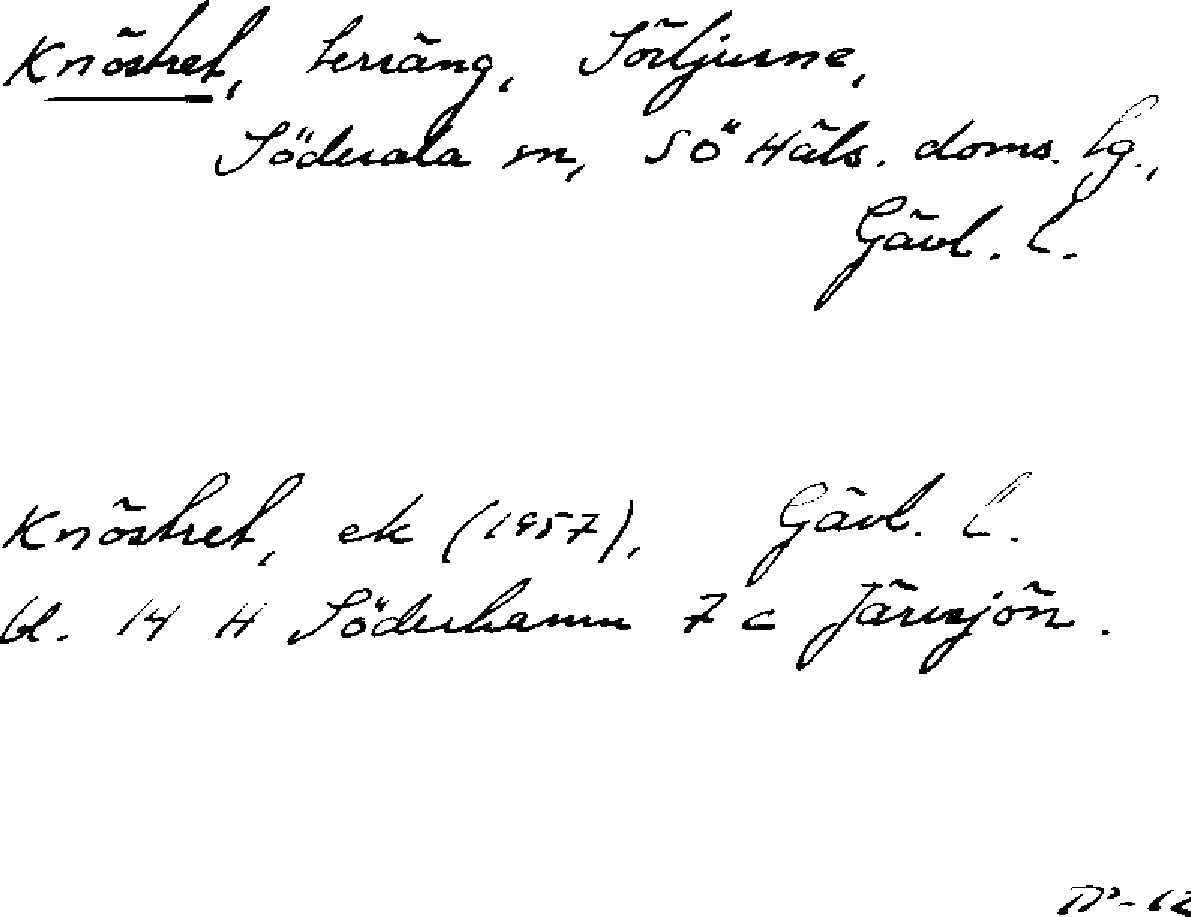 Knöstret, terräng, Sörljusne,
Söderala sn, SÖ Häls. doms. tg.,
Gävl. l.
Knöstret, ek (1957), Gävl. l.
bl. 14 H Söderhamn 7 c Järvsjön.